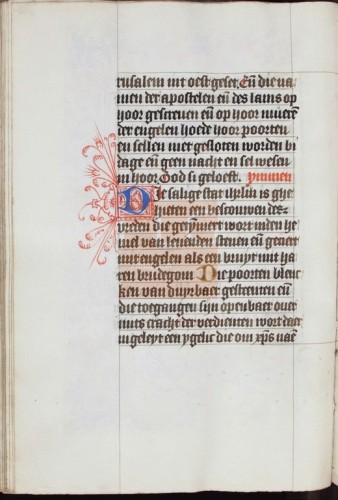 rusalem int oest geset. En̄ die na
men der apostelen en̄ des lams op
hoor gescreuen en̄ op hoor mueren
der engelen hoede hoor poorten
en sellen niet gesloten worden bi
dage en̄ geen nacht en sel wesen
in hoor God si geloeft. ymnen
Die salige stat ihrlm is ghe
hieten een bescouwen des
vreden die getymert wort inden he
mel van leuenden stenen en̄ geciert
mit engelen als een bruyt mit ha
ren brudegom Die poorten blenc
ken van duyrbaer gesteenten en̄
die toegangen sijn openbaer ouer
mits cracht der verdienten wort daer
in geleyt een ygelic die om xp̄s naē